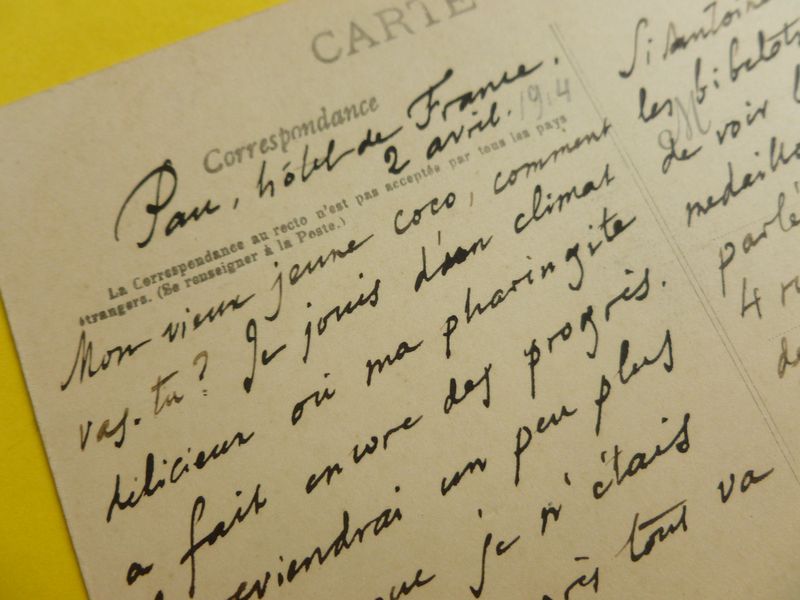 CARTE
Correspondance
Pau, hôtel de France.
2 avril. 1914
La Correspondance au recto n'est pas acceptée par tous les pays
étrangers. (Se renseigner à la Poste.)
Mon vieux jeune coco, comment
vas-tu ? Je jouis d'un climat
délicieux où ma pharingite
a fait encore des progrès.
reviendrai un peu plus
que je n'étais
tout va
Si Antoine
les bibelots
M
de voir
medaillo
parlé
4 ru
de